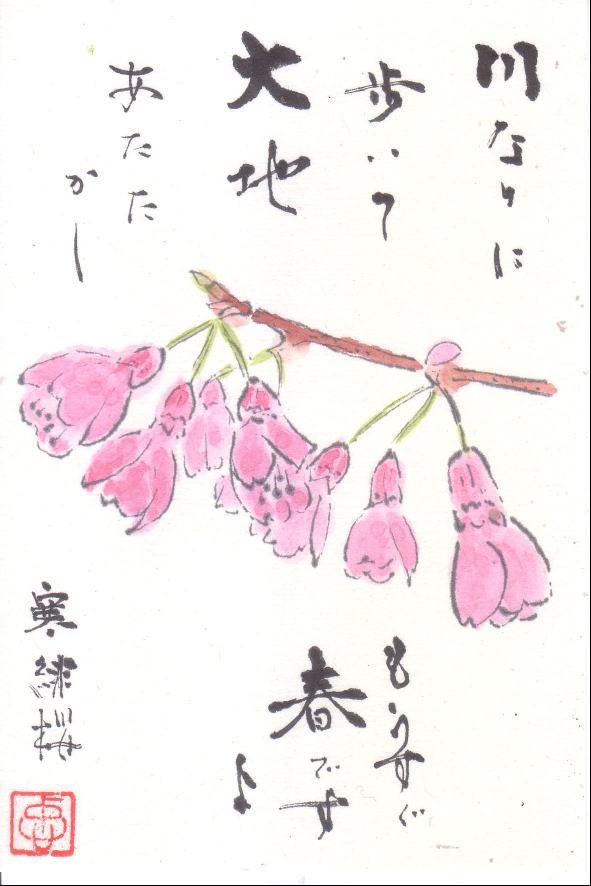 川なりに
歩いて
大地
あたた
かし
もうすぐ
春です
よ
寒緋桜